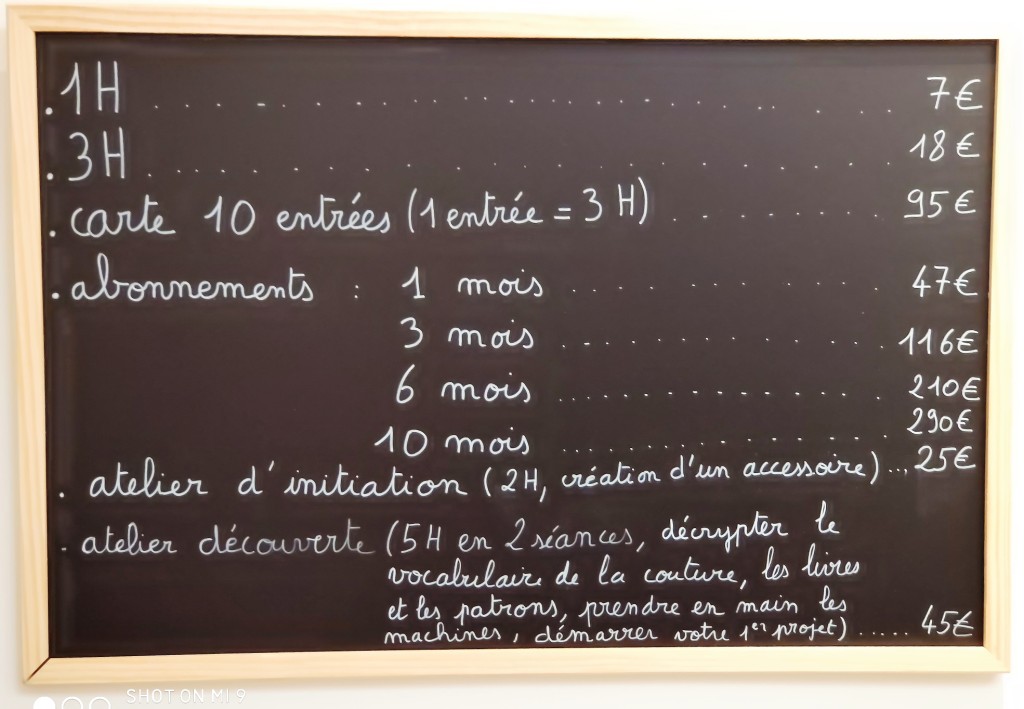 . 1H .................... 7€
. 3H .................... 18€
. carte 10 entrées (1 entrée = 3 H) ........ 95€
. abonnements : 1 mois .......... 47€
3 mois .......... 116€
6 mois .......... 210€
10 mois .......... 290€
. atelier d'initiation (2H, création d'un accessoire) ... 25€
. atelier découverte (5H en 2 séances, décrypter le
vocabulaire de la couture, les livres
et les patrons, prendre en main les
machines, démarrer votre 1er projet) ..... 45€
SHOT ON MI 9